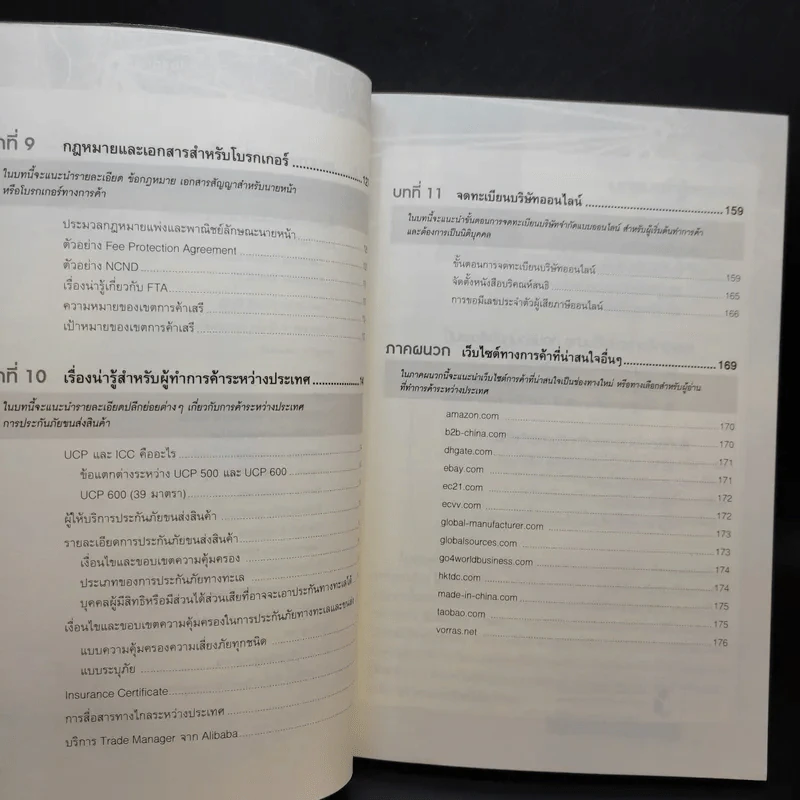 ที่ 9 กฎหมายและเอกสารสำหรับโบรกเกอร์
ในบทนี้จะแนะนำรายละเอียด ข้อกฎหมาย เอกสารสัญญาสำหรับนายหน้า
หรือโบรกเกอร์ทางการค้า
ประมวลกฎหมายแพ่งและพาณิชย์ลักษณะนายหน้า
ตัวอย่าง Fee Protection Agreement
ตัวอย่าง NCND
เรื่องน่ารู้เกี่ยวกับ FTA
ความหมายของเขตการค้าเสรี
เป้าหมายของเขตการค้าเสรี
ที่ 10 เรื่องน่ารู้สำหรับผู้ทำการค้าระหว่างประเทศ
ในบทนี้จะแนะนำรายละเอียดปลีกย่อยต่างๆ เกี่ยวกับการค้าระหว่างประเทศ
การประกันภัยขนส่งสินค้า
UCP และ ICC คืออะไร
ข้อแตกต่างระหว่าง UCP 500 และ UCP 600
UCP 600 (39 มาตรา)
ผู้ให้บริการประกันภัยขนส่งสินค้า
รายละเอียดการประกันภัยขนส่งสินค้า
เงื่อนไขและขอบเขตความคุ้มครอง
ประเภทของการประกันภัยทางทะเล
บุคคลผู้มีสิทธิหรือมีส่วนได้ส่วนเสียที่อาจจะเอาประกันทางทะเลได้
เงื่อนไขและขอบเขตความคุ้มครองในการประกันภัยทางทะเลและขนส่ง
แบบความคุ้มครองความเสี่ยงภัยทุกชนิด
แบบระบุภัย
Insurance Certificate
การสื่อสารทางไกลระหว่างประเทศ
บริการ Trade Manager จาก Alibaba
บทที่ 11 จดทะเบียนบริษัทออนไลน์ 159
ในบทนี้จะแนะนำขั้นตอนการจดทะเบียนบริษัทจำกัดแบบออนไลน์ สำหรับผู้เริ่มต้นทำการค้า
และต้องการเป็นนิติบุคคล
ขั้นตอนการจดทะเบียนบริษัทออนไลน์ 159
จัดตั้งหนังสือบริคณห์สนธิ 165
การขอมีเลขประจำตัวผู้เสียภาษีออนไลน์ 166
ภาคผนวก เว็บไซต์ทางการค้าที่น่าสนใจอื่นๆ 169
ในภาคผนวกนี้จะแนะนำเว็บไซต์การค้าที่น่าสนใจเป็นช่องทางใหม่ หรือทางเลือกสำหรับผู้อ่าน
ที่ทำการค้าระหว่างประเทศ
amazon.com 170
b2b-china.com 170
dhgate.com 171
ebay.com 171
ec21.com 172
ecvv.com 172
global-manufacturer.com 173
globalsources.com 173
go4worldbusiness.com 174
hktdc.com 174
made-in-china.com 175
taobao.com 175
vorras.net 176